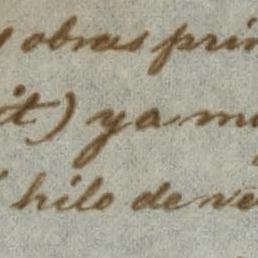 y obras prin
it) ya m
hilo de ve